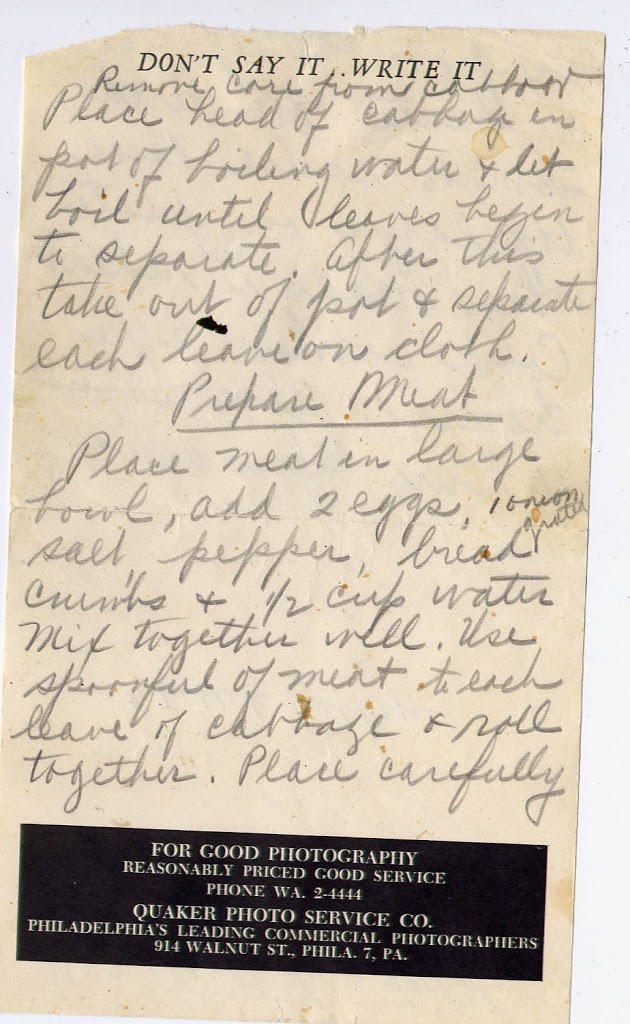 DON'T SAY IT...WRITE IT
Remove core from cabbage
Place head of cabbage in
pot of boiling water & let
boil until leaves begin
to separate. After this
take out of pot & separate
each leave on cloth.
Prepare Meat
Place meat in large
bowl, add 2 eggs, 1 onion
grated
salt, pepper, bread
crumbs & 1/2 cup water
Mix together well. Use
spoonful of meat to each
leave of cabbage & roll
together. Place carefully
FOR GOOD PHOTOGRAPHY
REASONABLY PRICED GOOD SERVICE
PHONE WA. 2-4444
QUAKER PHOTO SERVICE CO.
PHILADELPHIA'S LEADING COMMERCIAL PHOTOGRAPHERS
914 WALNUT ST., PHILA. 7, PA.